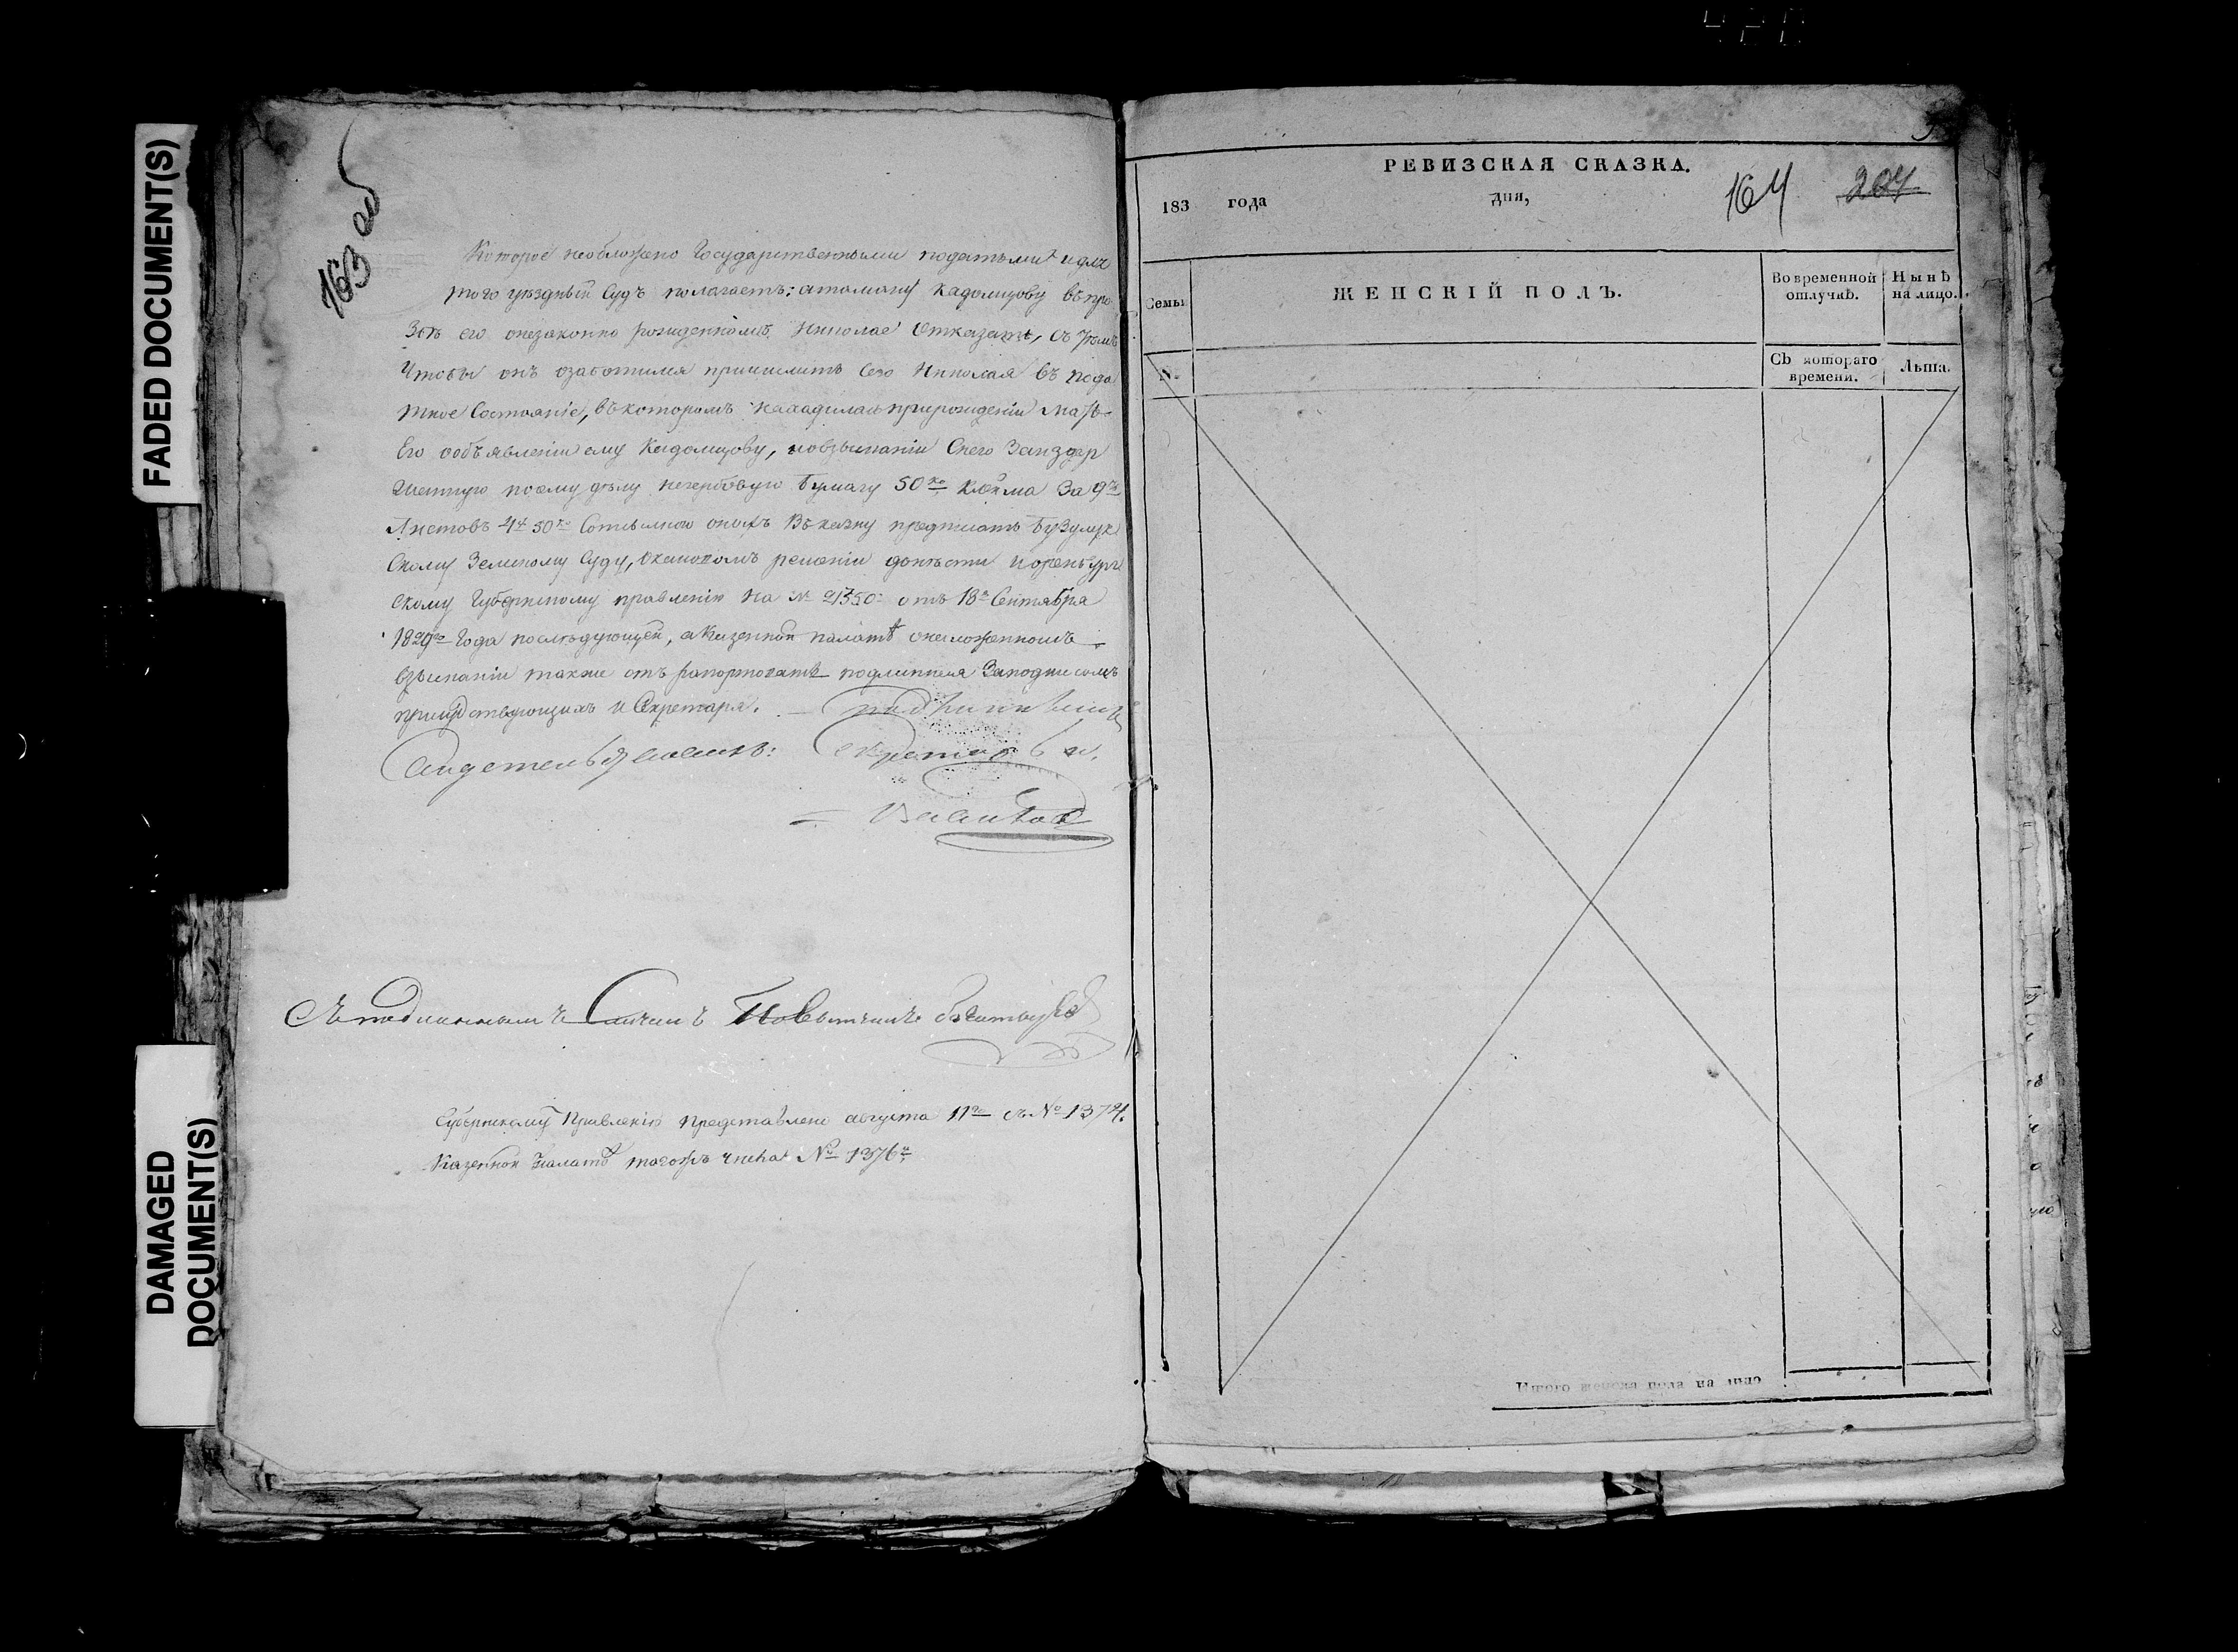 FADED DOCUMENT(S)
DAMAGED DOCUMENT(S)
163 об
Которое необложено Государственными податьми и для
того уѣздный Судъ полагаетъ: атаману Кадомцову въ про
зьбѣ его онезаконно рожденномъ Николае Отказать, съ тѣмъ
Чтобы онъ озаботился причислить Сего Николая въ пода
тное Состояніе, въ которомъ находилась при рожденіи мать
Его ообъявленіи ему Кадомцову, и овзысканіи Снего За
по сему дѣлу негербовую бумагу 50 ко За 9ть
Листовъ 4 50 ко Сотсылкою оныхъ Въ казну предписать бузулук
Скому Земскому Суду, о каковомъ решеніи донѣсти и оренбург
скому Губернскому правленію на № 21350 отъ 18 Сентября
1829го Года последующей, а Казенной палатѣ
взысканіи также отъ рапортовать подлинная Заподписомъ
присудствующихъ и Секретаря.
Секретарь
Съ подлиннымъ Повытчикъ
Губернскому Правленію Представлено августа 11го съ № 1374.
Казенной Палатѣ тогожъ числа № 1376
РЕВИЗСКАЯ СКАЗКА.
183 года дня,
164 204
Семьи
ЖЕНСКІЙ ПОЛЪ.
Во временной отлучкѣ.
Нынѣ на лицо.
№
Съ котораго времени.
Лѣта.
Итого женска пола на лицо